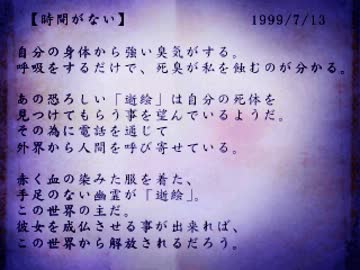 【時間がない】 1999/7/13
自分の身体から強い臭気がする。
呼吸をするだけで、死臭が私を蝕むのが分かる。
あの恐ろしい「逝絵」は自分の死体を
見つけてもらう事を望んでいるようだ。
その為に電話を通じて
外界から人間を呼び寄せている。
赤く血の染みた服を着た、
手足のない幽霊が「逝絵」。
この世界の主だ。
彼女を成仏させる事が出来れば、
この世界から解放されるだろう。